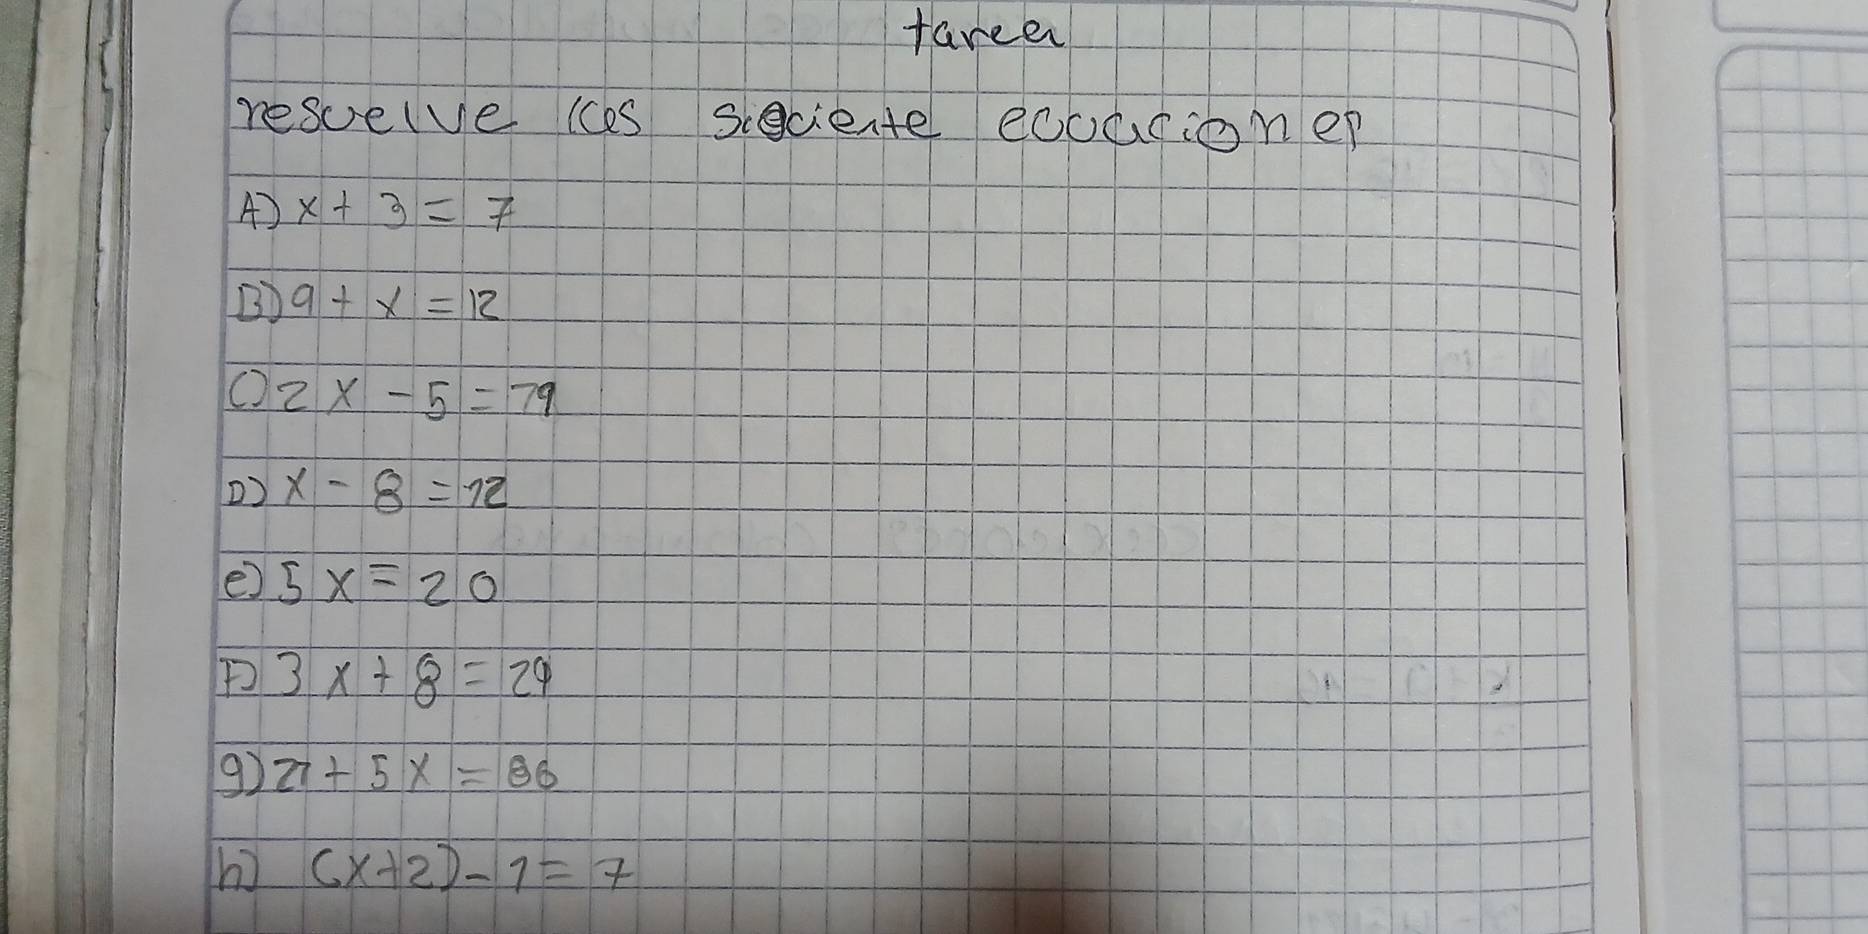 tarea
resuelve las siguiente ecuaciones
A) x + 3 = 7
B) 9 + x = 12
C) 2x - 5 = 19
D) x - 8 = 12
e) 5x = 20
F) 3x + 8 = 29
g) 21 + 5x = 86
h) (x+2) - 1 = 7